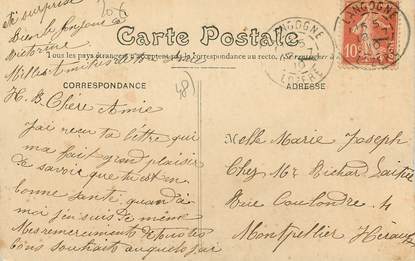 surprise
206
Bien le bonjour à
Victorine
Milles amitiés
Carte Postale
Tous les pays étrangers n'acceptent pas la correspondance au recto
LANGOGNE
LOZÈRE
LANGOGNE
10
CORRESPONDANCE
48)
ADRESSE
H. B. Chère Amie
J'ai reçu ta lettre qui
ma fait grand plaisir
de savoir que tu est en
bonne santé quand à
moi j'en suis de même
Mes remerciments de tous tes
bons souhaits auquels j'ai
Melle Marie Joseph
Chez Mr Richard
Rue Coulondre 4
Montpellier Hérault